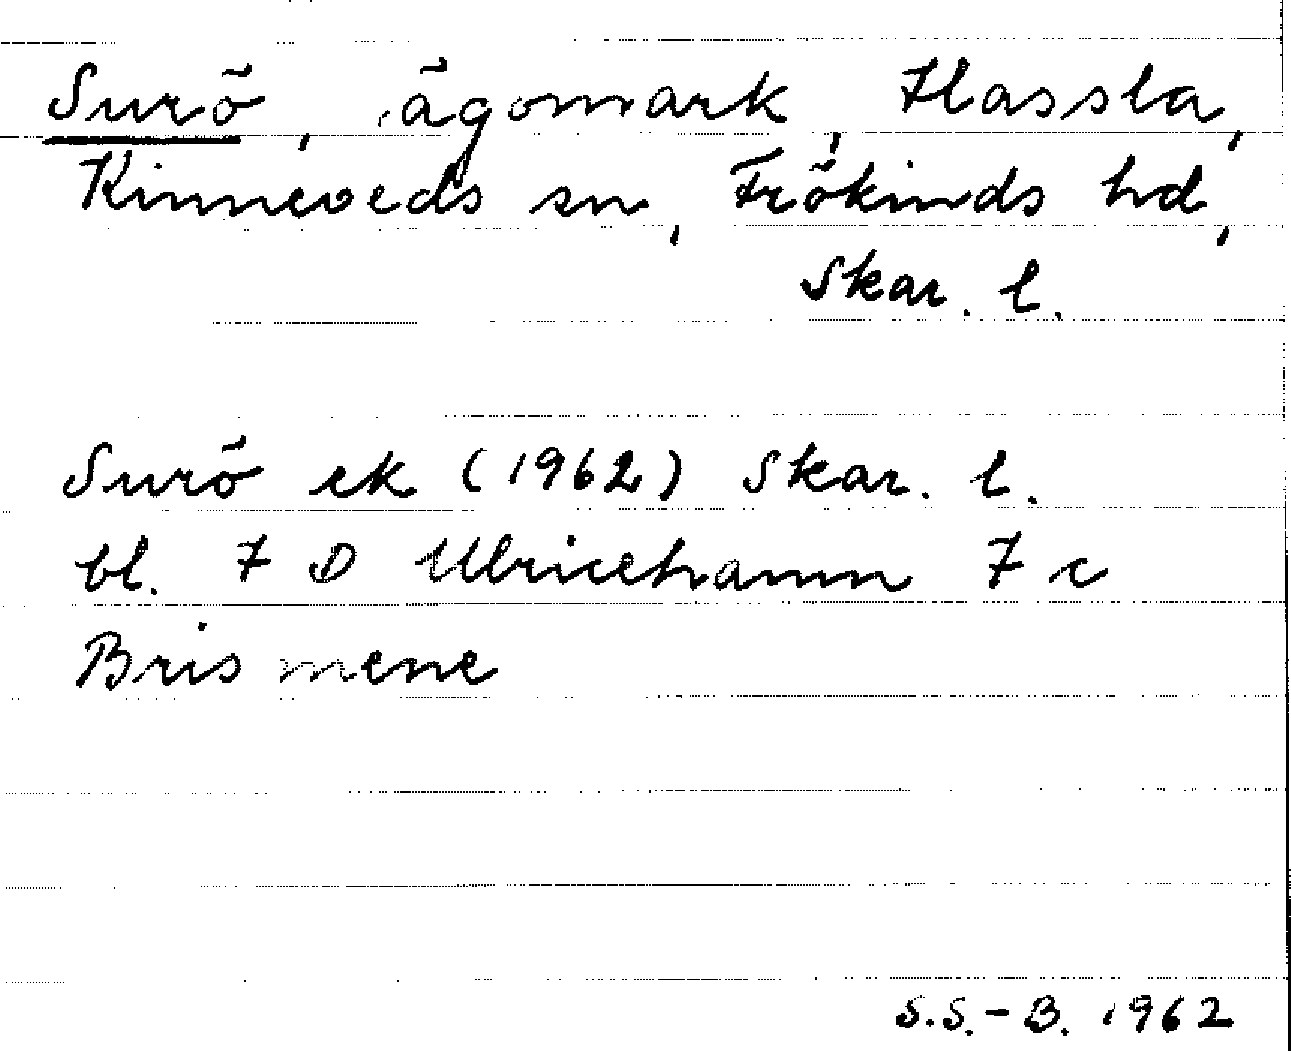 Surö, ägomark, Hassla,
Kinneveds sn, Frökinds hd,
Skar. l.
Surö ek (1962) Skar. l.
bl. 7 D Ulricehamn 7 c
Brismene
S.S.-B. 1962